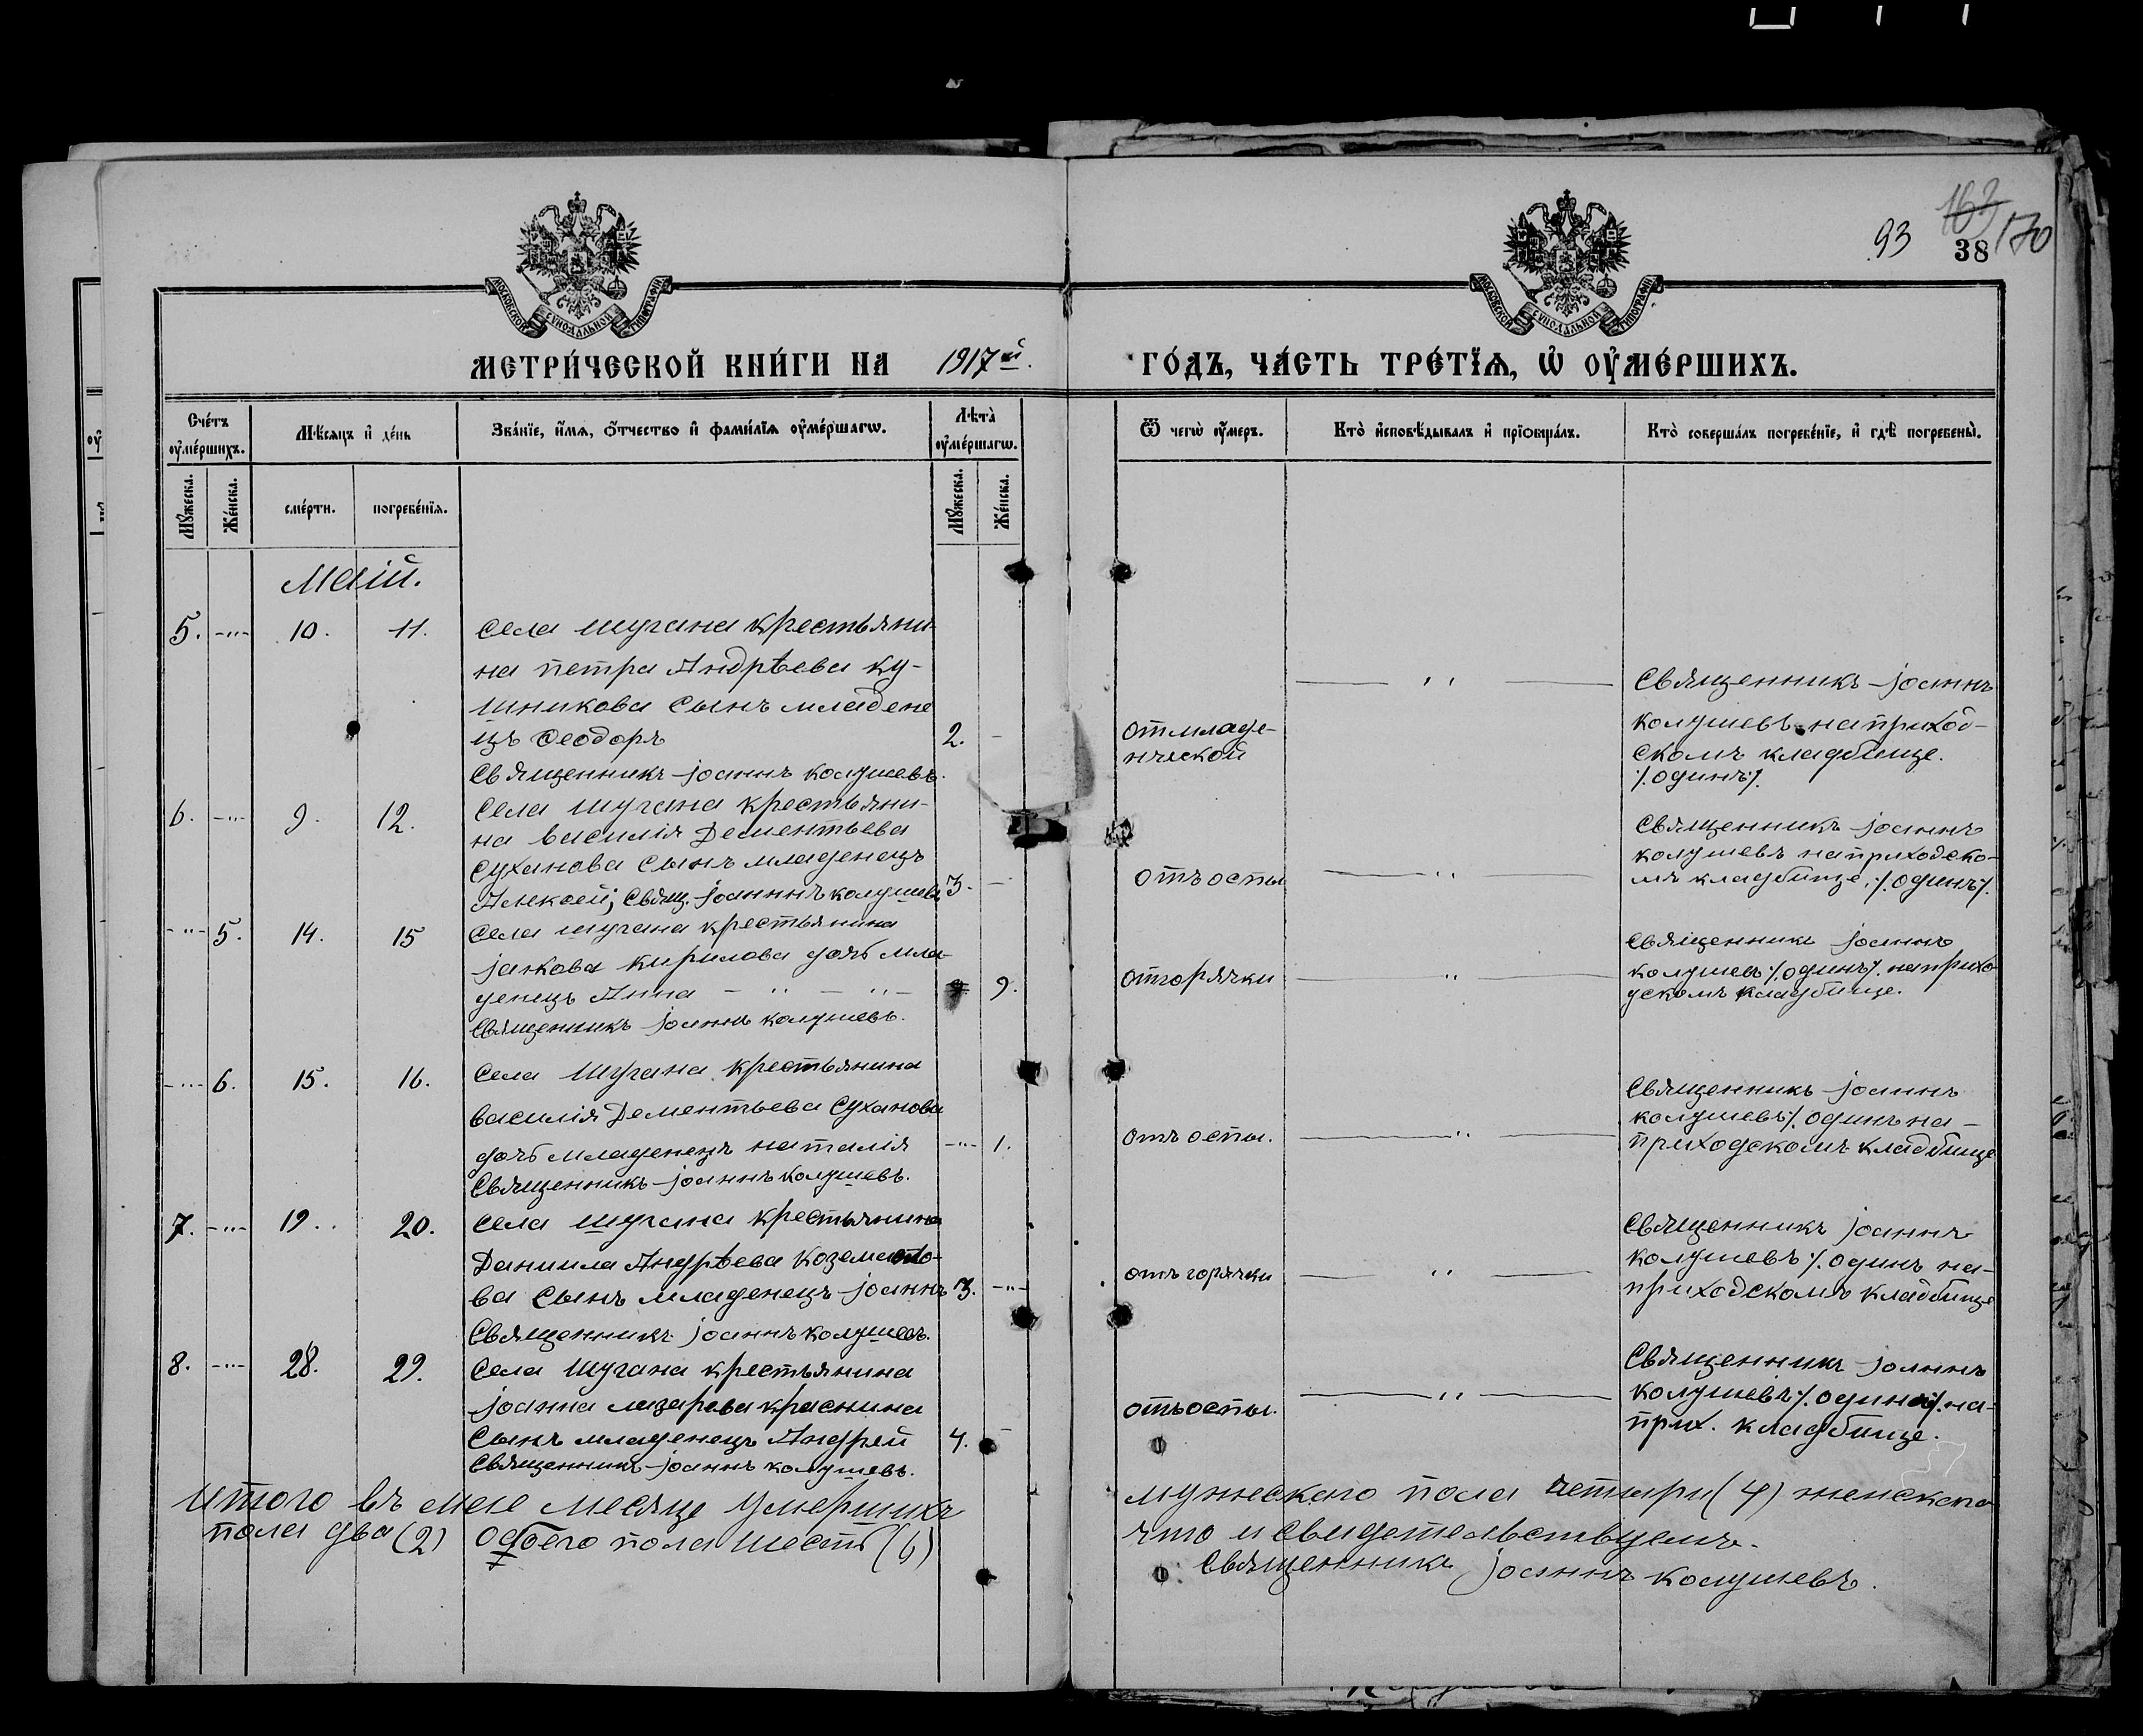 93 163 170
38
МОСКОВСКОЙ СѴНОДАЛЬНОЙ ТИПОГРАФІИ
МОСКОВСКОЙ СѴНОДАЛЬНОЙ ТИПОГРАФІИ
МЕТРИ́ЧЕСКОЙ КНИ́ГИ НА 1917й. ГО́ДЪ, ЧА́СТЬ ТРЕ́ТЇѦ, Ѡ҆ ОУ҆МЕ́РШИХЪ.
Сче́тъ оу҆ме́ршихъ.
Мѣ́сяцъ и҆ де́нь
Зва́нїе, и҆́мѧ, ѻ҆́тчество и҆ фами́лїѧ оу҆ме́ршагѡ.
Лѣ̑та̀ оу҆ме́ршагѡ.
Ѿ чегѡ̀ оу҆́меръ.
Кто̀ и҆сповѣ́дывалъ и҆ прїѻбща́лъ.
Кто̀ соверша́лъ погребе́нїе, и҆ гдѣ̀ погребены̀.
Мꙋ́жеска.
Же́нска.
сме́рти.
погребе́нїѧ.
Мꙋ́жеска.
Же́нска.
Маій.
5. -"- 10. 11. Села Шугана крестьяни-
на Петра Андрѣева Ку-
шникова сынъ младене
цъ Ѳеодоръ 2. -
Священникъ Іоаннъ Колушевъ.
от младе-
нческой
— " —
Священникъ Іоаннъ
Колушевъ на приход-
скомъ кладбище.
/. одинъ /.
6. -"- 9. 12. Села Шугана крестьяни-
на Василія Дементьева
Суханова сынъ младенецъ
Алексей; Свящ. Іоаннъ Колушевъ 3. -
отъ оспы
— " —
Священникъ Іоаннъ
Колушевъ на приходско-
мъ кладбище, /. одинъ /.
-"- 5. 14. 15 Села Шугана крестьянина
Іакова Кирилова дочь мла-
денецъ Анна — " — " — 9.
Священникъ Іоаннъ Колушевъ.
от горячки
— " —
Священникъ Іоаннъ
Колушевъ /. одинъ /. на прихо-
дскомъ кладбище.
-"- 6. 15. 16. Села Шугана крестьянина
Василія Дементьева Суханова
дочь младенецъ Наталія -"- 1.
Священникъ Іоаннъ Колушевъ.
отъ оспы.
— " —
Священникъ Іоаннъ
Колушевъ /. одинъ на -
приходскомъ кладбище
7. -"- 19. 20. Села Шугана крестьянина
Даниила Андрѣева
ва сынъ младенецъ Іоаннъ 3. -"-
Священникъ Іоаннъ Колушевъ.
отъ горячки
— " —
Священникъ Іоаннъ
Колушевъ /. одинъ на-
приходскомъ кладбище
8. -"- 28. 29. Села Шугана крестьянина
Іоанна Лазарева Краснина
сынъ младенецъ Андрей 4. -
Священникъ Іоаннъ Колушевъ.
отъ оспы.
— " —
Священникъ Іоаннъ
Колушевъ /. одинъ /. на-
прих. кладбище.
Итого въ мае месяце умершихъ мужескаго пола четыри (4) женскаго
пола два (2) обоего пола шесть (6) что и свидетельствуемъ.
Священникъ Іоаннъ Колушевъ.